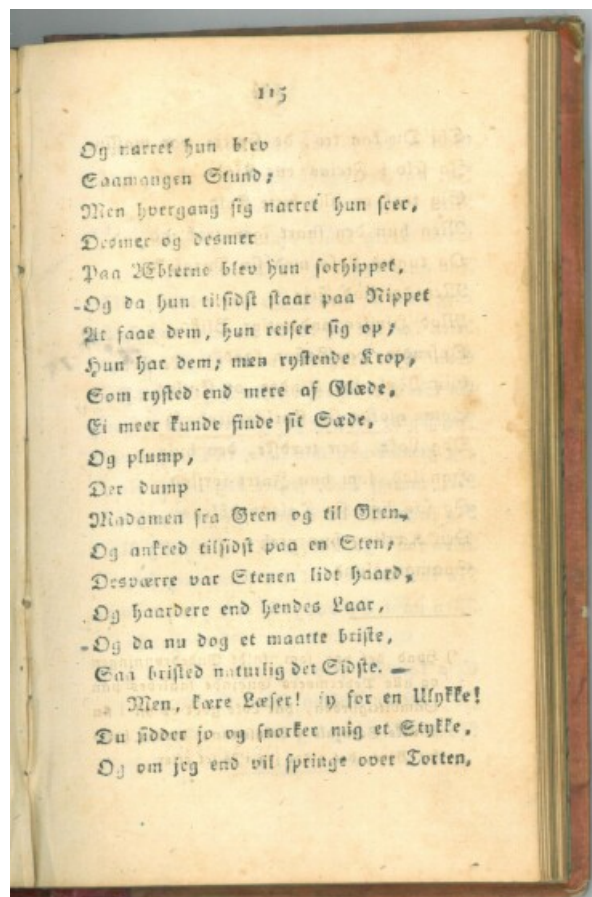 115
Og narret hun blev
Saamangen Stund;
Men hvergang sig narret hun seer,
Desmer og desmer
Paa Æblerne blev hun forhippet,
Og da hun tilsidst staar paa Nippet
At faae dem, hun reiser sig op;
Hun har dem; men rystende Krop,
Som rysted end mere af Glæde,
Ei meer kunde finde sit Sæde,
Og plump,
Der dump
Madamen fra Green og til Green,
Og ankred tilsidst paa en Steen;
Desværre var Stenen lidt haard,
Og haardere end hendes Laar,
Og da nu dog et maatte briste,
Saa bristed naturlig det Sidste. —
Men, kære Læser! fy for en Ulykke!
Du sidder jo og snorker mig et Stykke,
Og om jeg end vil springe over Totten,